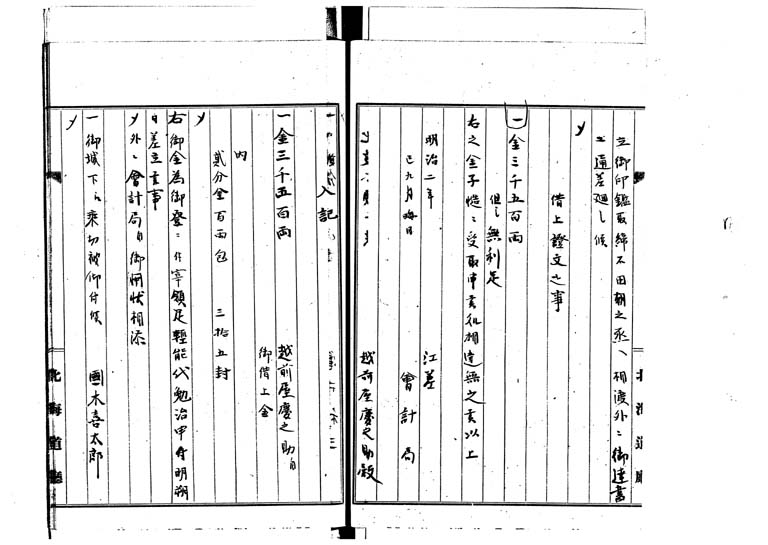 立御印鑑取締下田朝之丞へ相渡外ニ御達書
壱通差廻し候
〆
借上證文之事
一金三千五百両
但し無利足
右之金子慥ニ受取申実化相違無之実以上
明治二年
巳九月晦日
江差
會計局
越前屋慶之助殿
入記
一金三千五百両
越前屋慶之助ゟ
御借上金
内
貳分金百両包
三拾五封
〆
右御金為御登ニ付宰領足軽能代勉治甲付明朔
日差立実事
〆外ニ會計局ゟ御用状相添
一御城下ゟ乗切被仰付候
國木喜太郎
〆
北海道廳